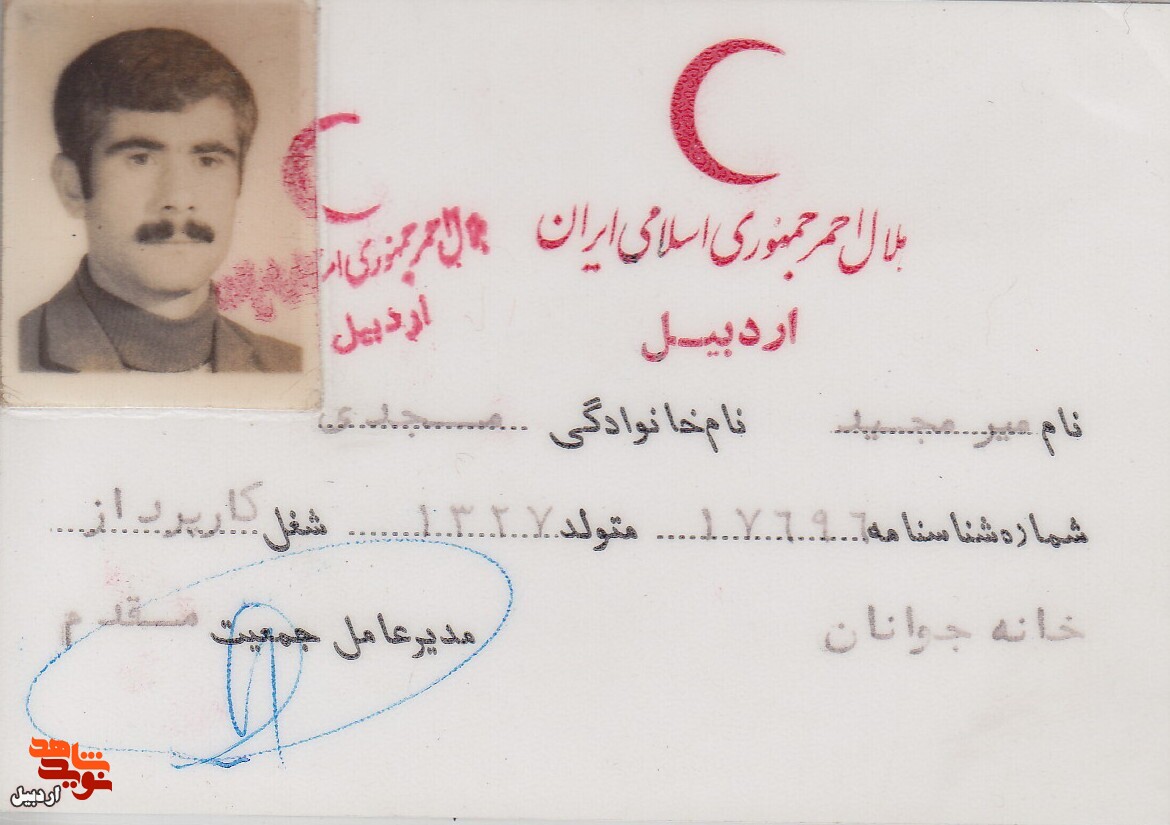 هلال احمر جمهوری اسلامی ایران
اردبیل
هلال احمر جمهوری اسلامی
اردبیل
نام میر مجید نام خانوادگی مسجدی
شماره شناسنامه ۱۷۶۹۶ متولد ۱۳۲۷ شغل کارپرداز
خانه جوانان مدیر عامل جمعیت مقدم
نوید شاهد
اردبیل